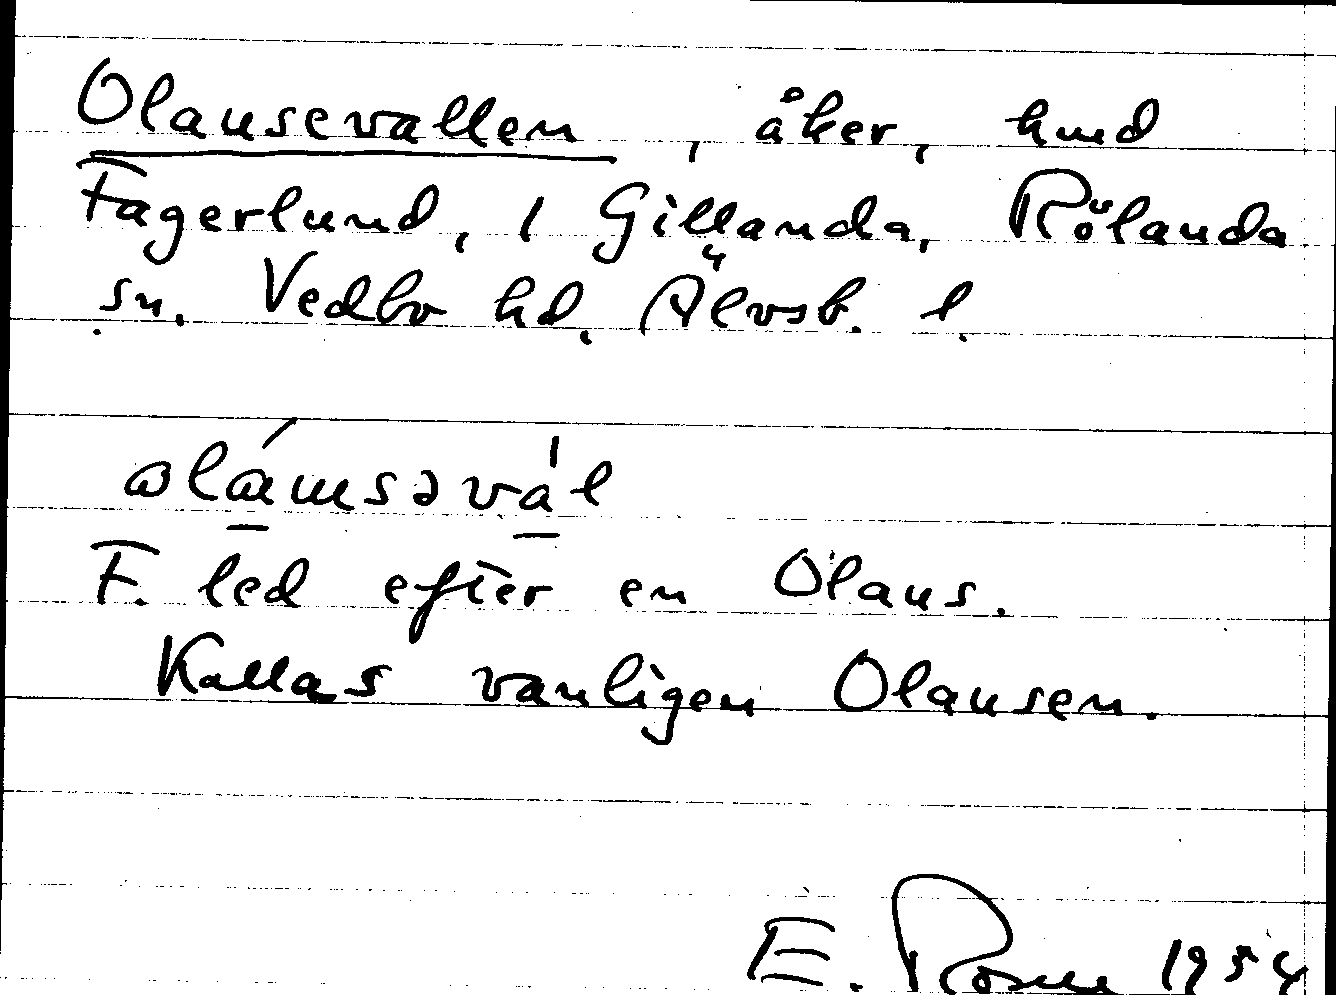 Olausevallen, åker, hmd
Fagerlund, 1 Gillanda, Rölanda
sn. Vedbo hd. Älvsb. l.
F. led efter en Olaus.
Kallas vanligen Olausen.
E. Rosell 1954